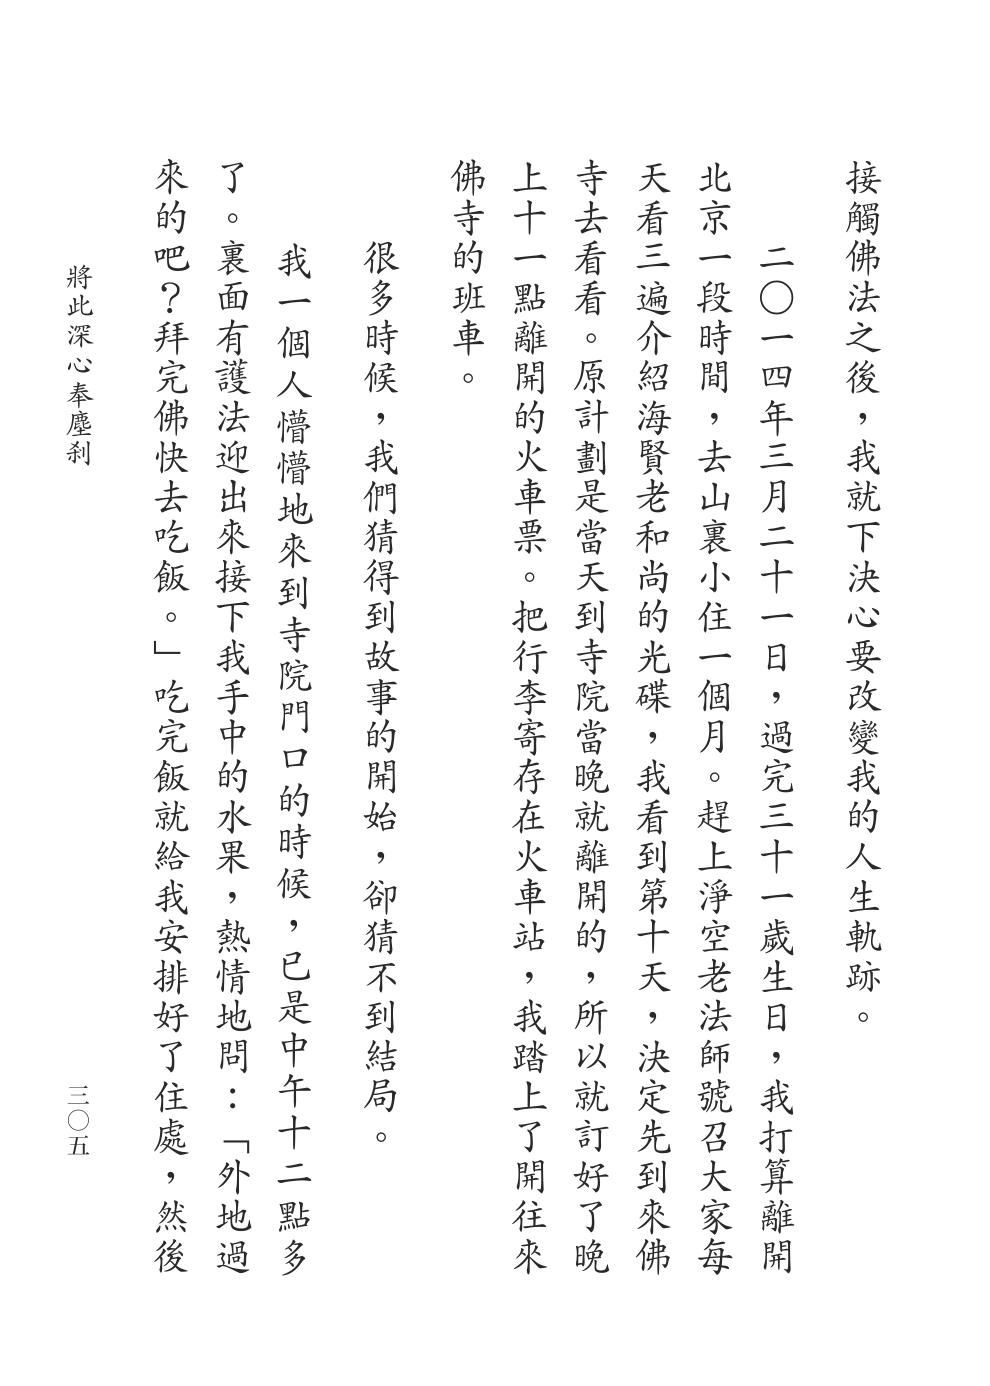 接觸佛法之後，我就下決心要改變我的人生軌跡。
二〇一四年三月二十一日，過完三十一歲生日，我打算離開
北京一段時間，去山裏小住一個月。趕上淨空老法師號召大家每
天看三遍介紹海賢老和尚的光碟，我看到第十天，決定先到來佛
寺去看看。原計劃是當天到寺院當晚就離開的，所以就訂好了晚
上十一點離開的火車票。把行李寄存在火車站，我踏上了開往來
佛寺的班車。
很多時候，我們猜得到故事的開始，卻猜不到結局。
我一個人懵懵地來到寺院門口的時候，已是中午十二點多
了。裏面有護法迎出來接下我手中的水果，熱情地問：「外地過
來的吧？拜完佛快去吃飯。」吃完飯就給我安排好了住處，然後
將此深心奉塵剎
三〇五